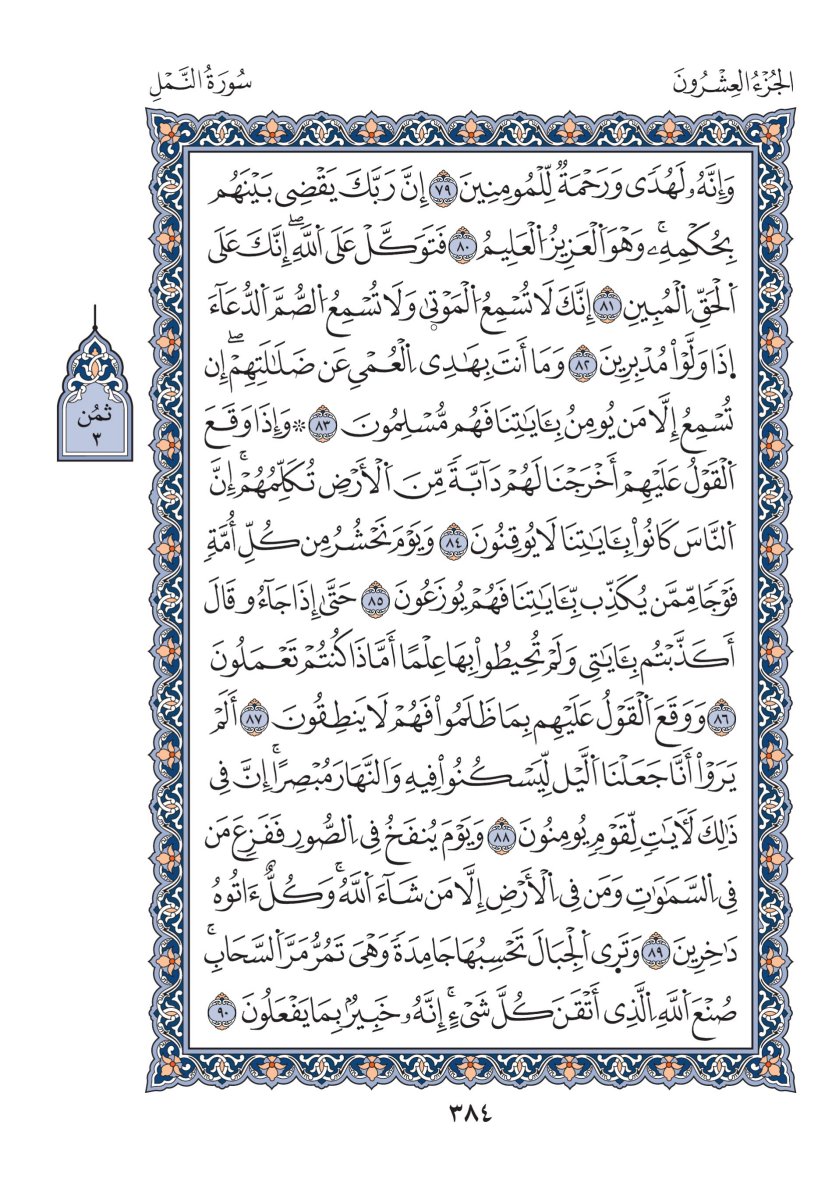 الجُزْءُ العِشْرُونَ
سُورَةُ النَّمْلِ
وَإِنَّهُۥ لَهُدًى وَرَحْمَةٌ لِّلْمُومِنِينَ ٧٩ إِنَّ رَبَّكَ يَقْضِى بَيْنَهُم
بِحُكْمِهِۦۚ وَهْوَ اَ۬لْعَزِيزُ اُ۬لْعَلِيمُ ٨٠ فَتَوَكَّلْ عَلَى اَ۬للَّهِۖ إِنَّكَ عَلَى
اَ۬لْحَقِّ اِ۬لْمُبِينِ ٨١ إِنَّكَ لَا تُسْمِعُ اُ۬لْمَوْتىٰ وَلَا تُسْمِعُ اُ۬لصُّمَّ اَ۬لدُّعَآءَ
اِ۪ذَا وَلَّوْاْ مُدْبِرِينَ ٨٢ وَمَا أَنتَ بِهَٰدِى اِ۬لْعُمْيِ عَن ضَلَٰلَتِهِمْۖ إِن
تُسْمِعُ إِلَّا مَن يُومِنُ بِـَٔايَٰتِنَا فَهُم مُّسْلِمُونَ ٨٣ ۞ وَإِذَا وَقَعَ
اَ۬لْقَوْلُ عَلَيْهِمْ أَخْرَجْنَا لَهُمْ دَآبَّةً مِّنَ اَ۬لْأَرْضِ تُكَلِّمُهُمْۚ إِنَّ
اَ۬لنَّاسَ كَانُواْ بِـَٔايَٰتِنَا لَا يُوقِنُونَ ٨٤ وَيَوْمَ نَحْشُرُ مِن كُلِّ أُمَّةٍ
فَوْجًا مِّمَّن يُكَذِّب بِّـَٔايَٰتِنَا فَهُمْ يُوزَعُونَ ٨٥ حَتَّىٰ إِذَا جَآءُو قَالَ
أَكَذَّبْتُم بِـَٔايَٰتِى وَلَمْ تُحِيطُواْ بِهَا عِلْمًا أَمَّاذَا كُنتُمْ تَعْمَلُونَ
٨٦ وَوَقَعَ اَ۬لْقَوْلُ عَلَيْهِم بِمَا ظَلَمُواْ فَهُمْ لَا يَنطِقُونَ ٨٧ أَلَمْ
يَرَوْاْ أَنَّا جَعَلْنَا اَ۬لَّيْل لِّيَسْكُنُواْ فِيهِ وَالنَّهَارَ مُبْصِرًاۚ إِنَّ فِى
ذَٰلِكَ لَأٓيَٰتٍ لِّقَوْمٍ يُومِنُونَ ٨٨ وَيَوْمَ يُنفَخُ فِى اِ۬لصُّورِ فَفَزِعَ مَن
فِى اِ۬لسَّمَٰوَٰتِ وَمَن فِى اِ۬لْأَرْضِ إِلَّا مَن شَآءَ اَ۬للَّهُۚ وَكُلٌّ ءَاتُوهُ
دَٰخِرِينَ ٨٩ وَتَرَى اَ۬لْجِبَالَ تَحْسِبُهَا جَامِدَةً وَهْىَ تَمُرُّ مَرَّ اَ۬لسَّحَابِۚ
صُنْعَ اَ۬للَّهِ اِ۬لَّذِى أَتْقَنَ كُلَّ شَىْءٍۚ إِنَّهُۥ خَبِيرٌۢ بِمَا يَفْعَلُونَ ٩٠
ثُمُن
٣
٣٨٤